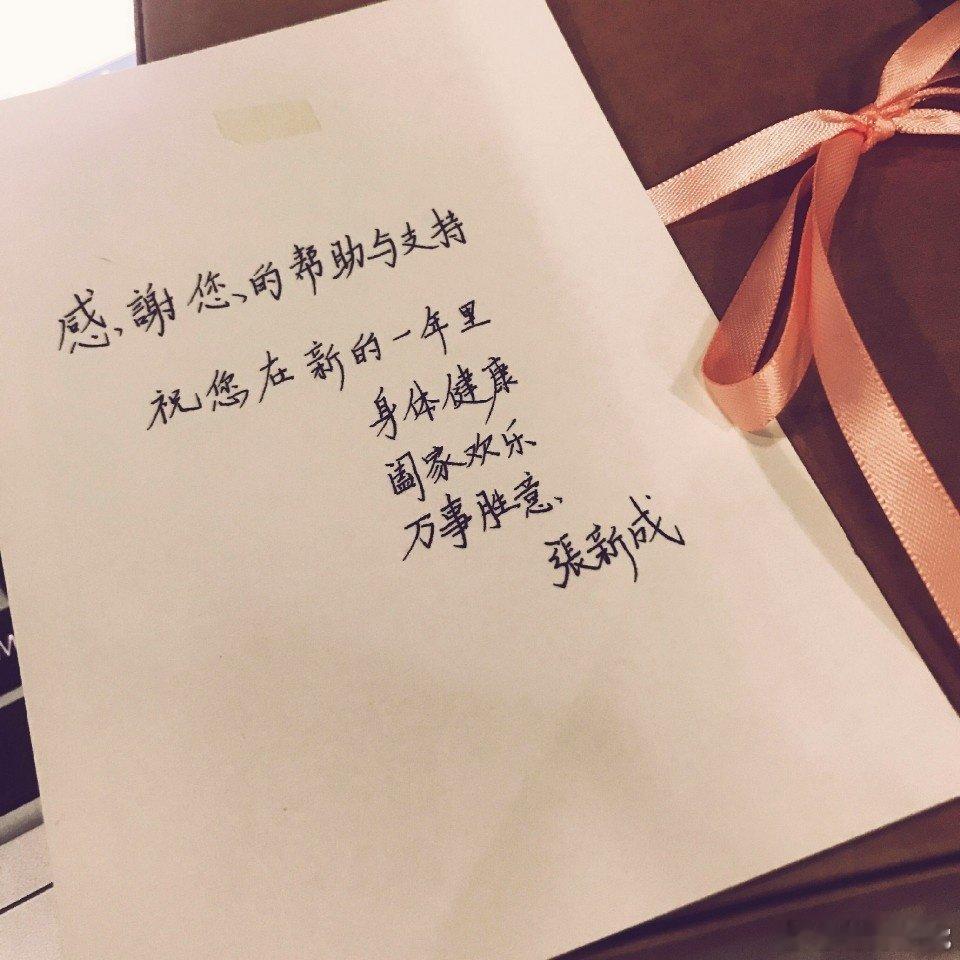 感謝您的帮助与支持
祝您在新的一年里
身体健康
阖家欢乐
万事胜意
張新成